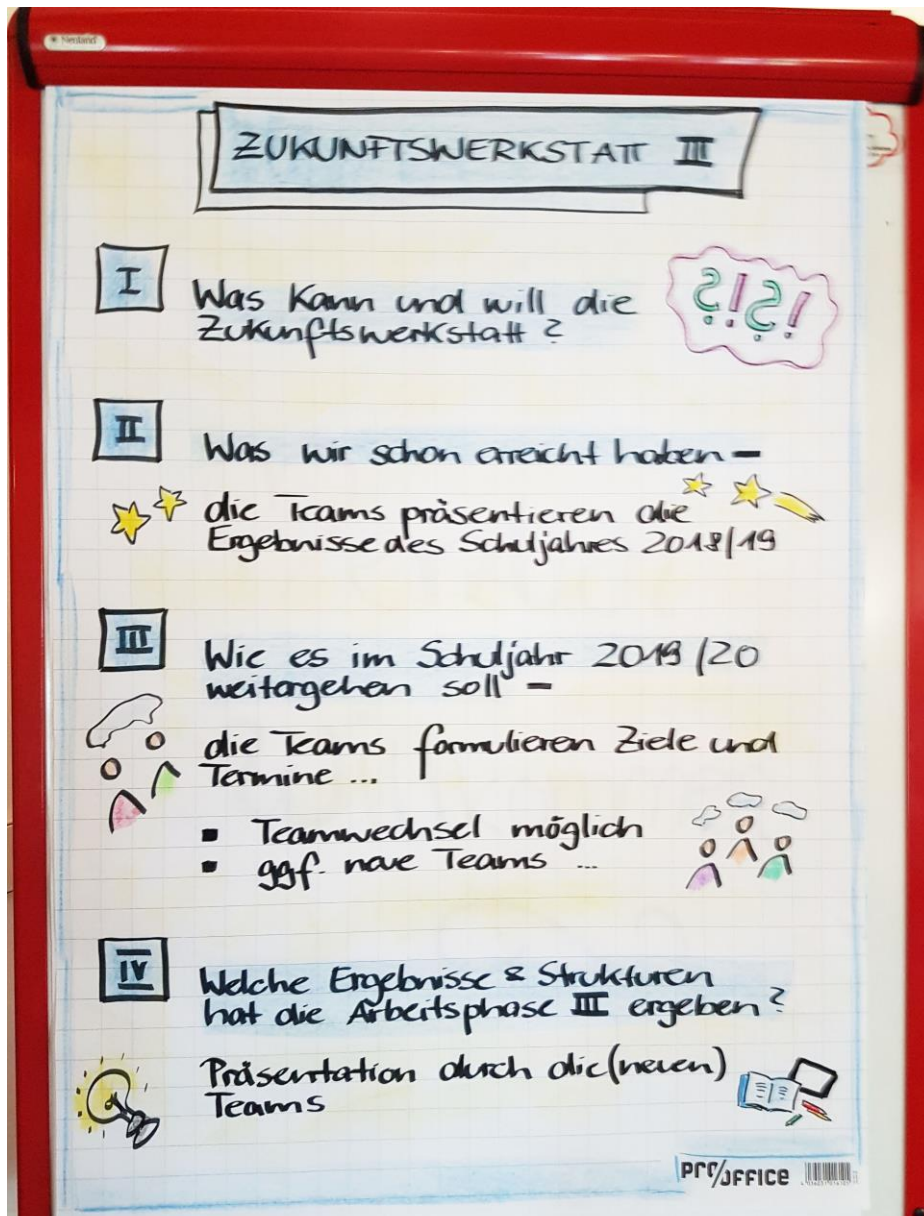 Neuland
ZUKUNFTSWERKSTATT III
I
Was kann und will die
Zukunftswerkstatt?
?!?!
II
Was wir schon erreicht haben –
die Teams präsentieren die
Ergebnisse des Schuljahres 2018/19
III
Wie es im Schuljahr 2019/20
weitergehen soll –
die Teams formulieren Ziele und
Termine ...
▪ Teamwechsel möglich
▪ ggf. neue Teams ...
IV
Welche Ergebnisse & Strukturen
hat die Arbeitsphase III ergeben?
Präsentation durch die (neuen)
Teams
PRO/OFFICE